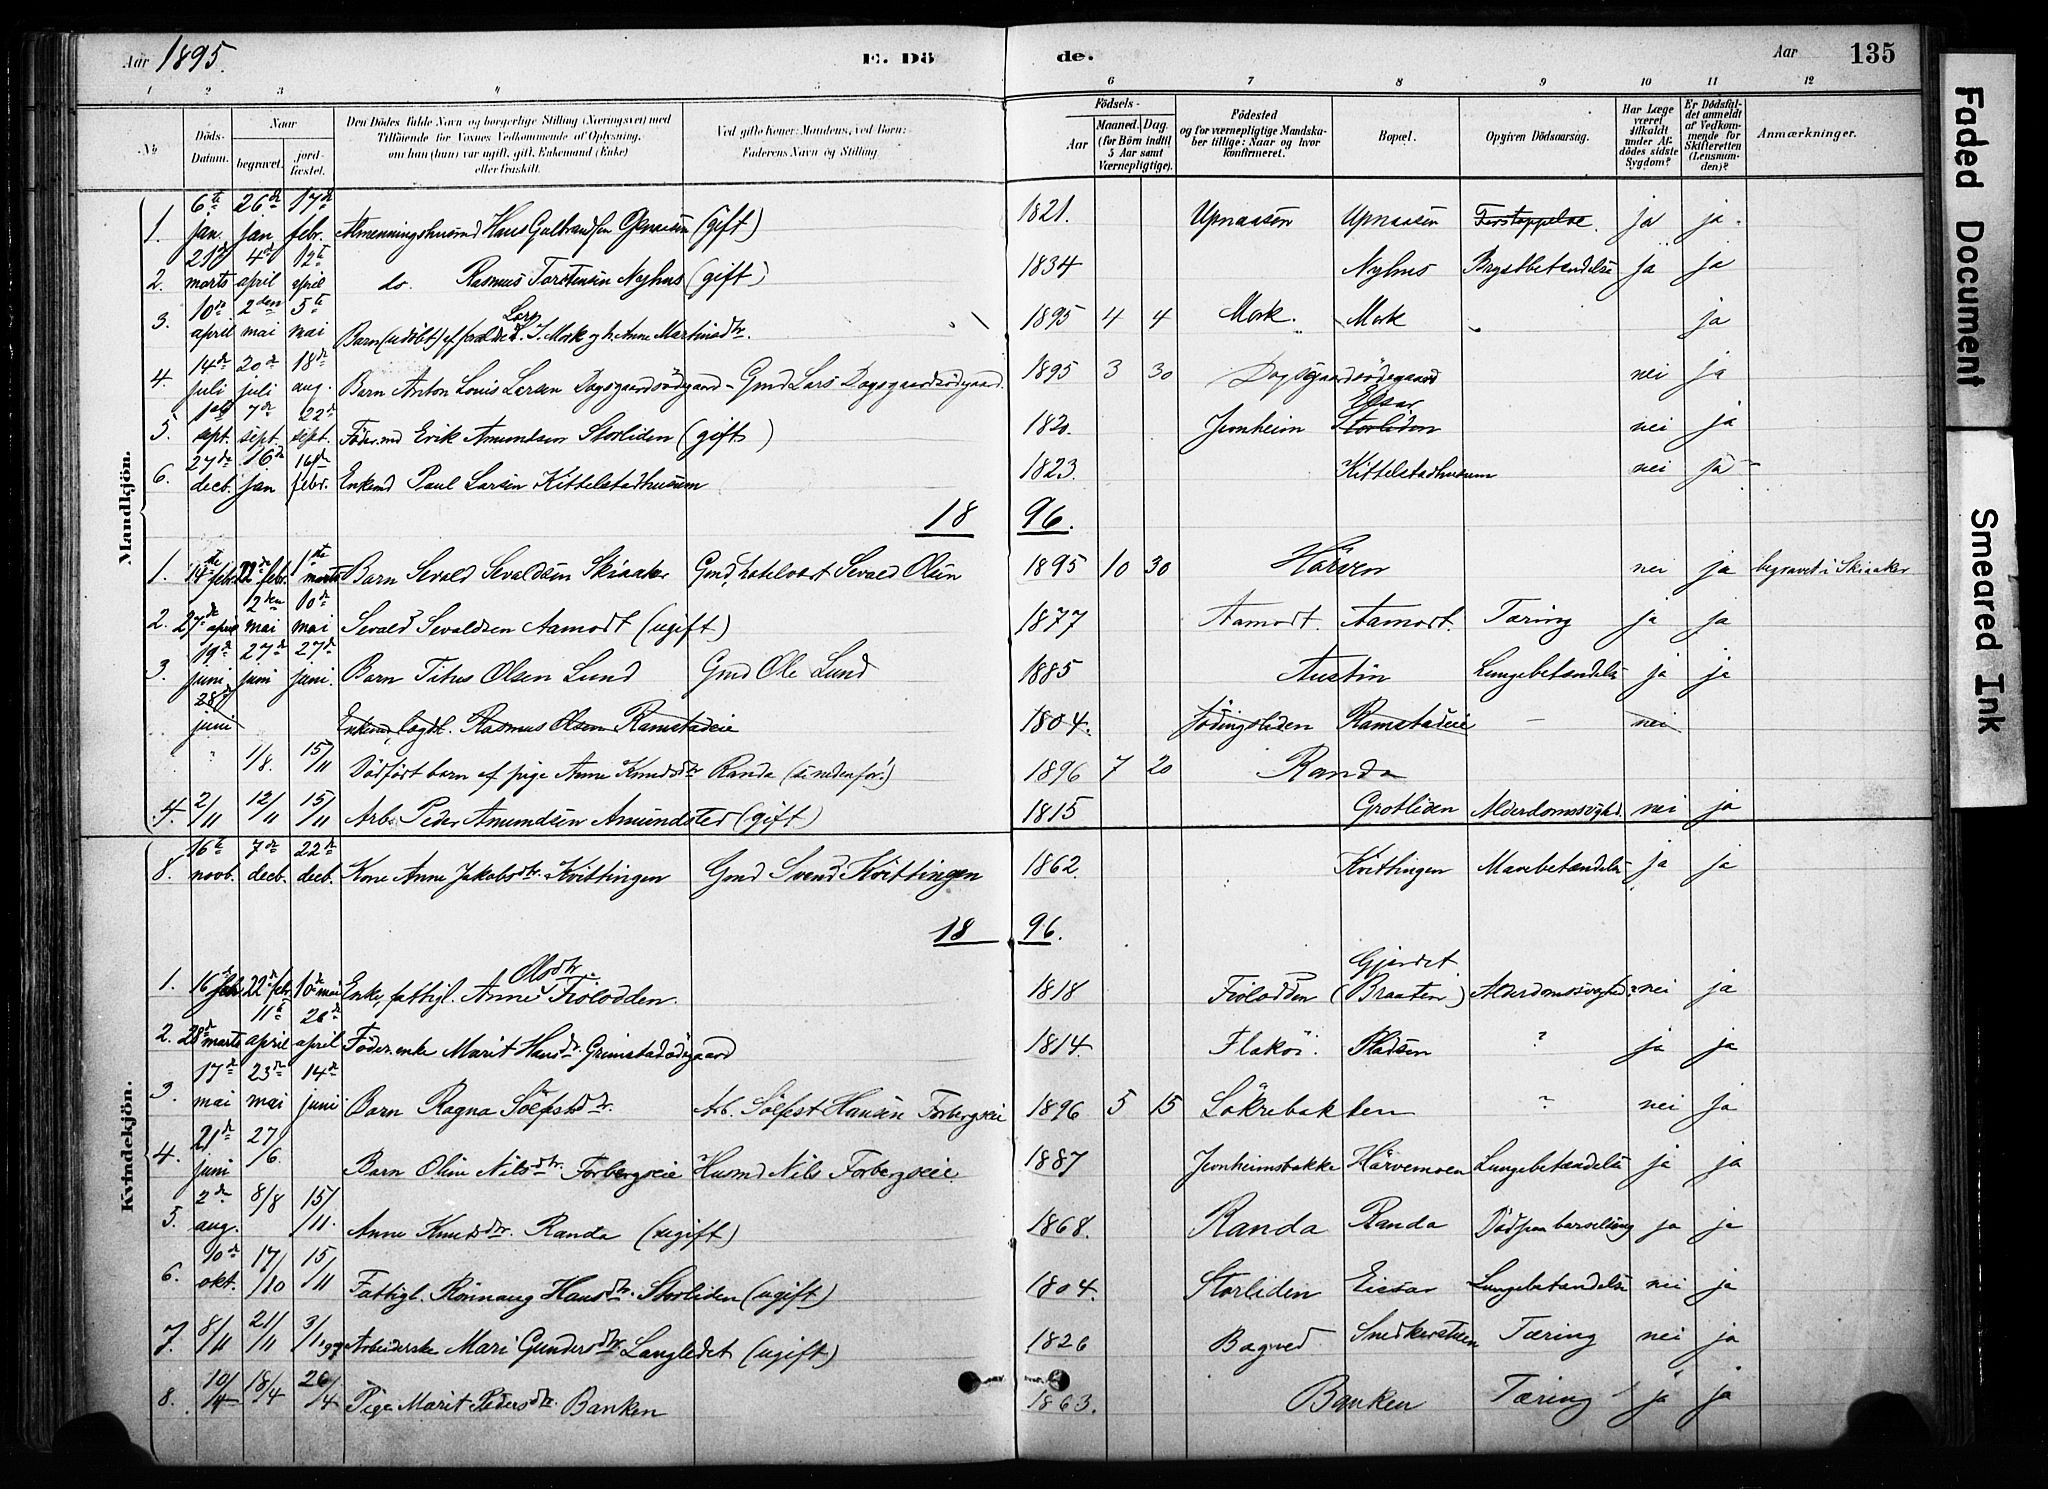 Aar 1895.
E. Dö
de.
Aar
135
1 2 3 4 5 6 7 8 9 10 11 12
No.
Döds-Datum.
Naar
begravet.
jord-fæstet.
Den Dödes fulde Navn og borgerlige Stilling (Næringsvei) med
Tilföiende for Voxnes Vedkommende af Oplysning,
om han (hun) var ugift, gift, Enkemand (Enke)
eller fraskilt.
Ved gifte Koner: Mandens, ved Börn:
Faderens Navn og Stilling.
Födsels-
Aar
Maaned. Dag.
(for Börn indtil 5 Aar samt Værnepligtige).
Födested
og for værnepligtige Mandskaber tillige: Naar og hvor konfirmeret.
Bopæl.
Opgiven Dödsaarsag.
Har Læge været tilkaldt under Afdödes sidste Sygdom?
Er Dödsfaldet anmeldt af Vedkommende for Skifteretten (Lensmanden)?
Anmærkninger.
Mandkjön.
1. 6te jan. 26de jan 17de febr. Almenningshusmd Hans Gulbrandsen Opnaasen (gift) 1821. Upnaasen Upnaasen Forstoppelse. ja ja.
2. marts 4de april 12te april do. Rasmus Torstensen Nyhus (gift) 1834 Nyhus Brystbetændelse ja ja
3. 10de april 2den mai 5te mai Barn (udöbt) af Lars J. Mork og h. Anne Martinsdtr. 1895 4 4 Mork. Mork ja
4. 14de juli 20de juli 18de aug. Barn Anton Louis Larsen Dagsgaardsödegaard - Gmd Lars Dagsgaardsödegaard. 1895 3 30 Dagsgaardsödegaard nei ja
5. 1ste sept. 7de sept. 22de sept. Föder.md Erik Amundsen Storliden (gift) 1820. Jonheim Storliden nei ja
6. 27de decb. 16de jan 16de febr. Enkemd Paul Larsen Kittelstadhusum 1823. Kittelstadhusum nei ja
18 96.
1. 14de febr 22de febr. 1ste marts Barn Sevald Sevaldsen Skiaaker Gmd, hotelvært Sevald Olsen 1895 10 30 Hörven nei ja begravet i Skiaaker
2. 27de april 2den mai 10de mai Sevald Sevaldsen Aamodt (ugift) 1877 Aamodt. Aamodt. Tæring ja ja
3. 19de juni 27de juni 27de juni. Barn Titus Olsen Lund Gmd Ole Lund 1885 Austin Lungebetændelse ja ja
28de juni Enkemd, lægdl. Rasmus Olsen Ramstadeie 1804. Ramstadeie — nei
1/8. 15/11 Dödfört barn af pige Anne Knudsdtr Randa (se nedenfor!) 1896 7 20 Randa
4. 2/11 12/11 15/11 Arb. Peder Amundsen Amundsted (gift) 1815 Grotliden Alderdomssvaghd. nei ja
8. 16de novb. 7de decb. 22de decb. Kone Anne Jakobsdtr. Kvittingen Gmd Svend Kvittingen 1862. Kvittingen Mavebetændelse ja ja
18 96.
Kvindekjön.
1. 16de febr 22de febr 10de mai Enke, fattigl. Anne Olsdtr. Fiolodden. 1818 Fiolodden Gjerdet (Braaten) Alderdomssvaghed? nei ja
2. 28de marts 11te april 26de april Föder.enke Marit Hansdtr. Grimstadödegaard 1814. Flaköi. Pladsen ? ja ja
3. 17de mai 23de mai 14de juni Barn Ragna Sölfestdtr. Arb. Sölfest Hansen Forbergseie 1896 5 15 Lökrebakken ? nei ja
4. 21de juni 27/6. Barn Oline Nilsdtr. Forbergseie Husmd Nils Forbergseie. 1887 Jonheimsbakke Hörvemoen Lungebetændelse ja ja
5. 2de aug. 8/8 15/11. Anne Knudsdtr. Randa (ugift) 1868. Randa Randa Död paa barselseng ja ja
6. 10de okt. 17/10 15/11 Fattigl. Rönnaug Hansdtr. Storliden (ugift) 1804. Storliden Lungebetændelse nei ja
7. 8/11 21/11 3/1 97 Arbeiderske Mari Gundersdtr. Langledet (ugift) 1826 Bagved Snedkerstuen Tæring nei ja
8. 10/4 18/4 26/4 Pige Marit Pedersdtr. Banken 1863. Banken Tæring ja ja
Faded Document
Smeared Ink